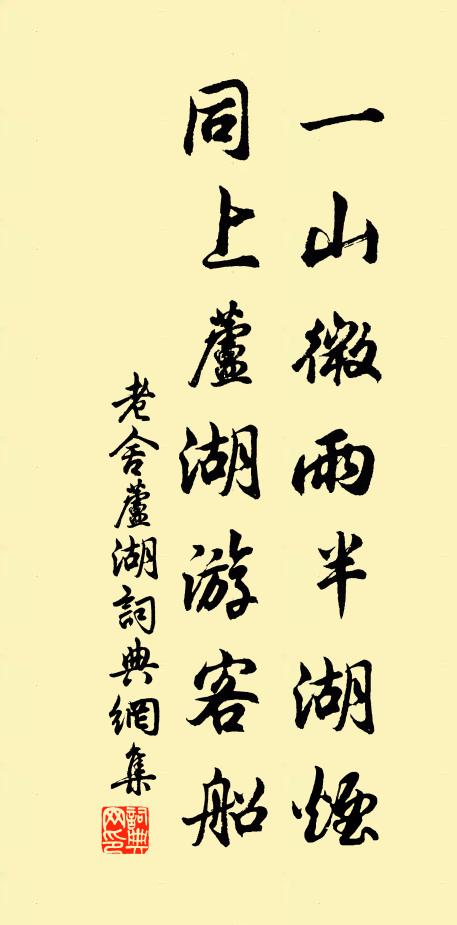 一山微雨半湖煙
同上蘆湖游客船
老舍蘆湖詞典網集
詞典
网印